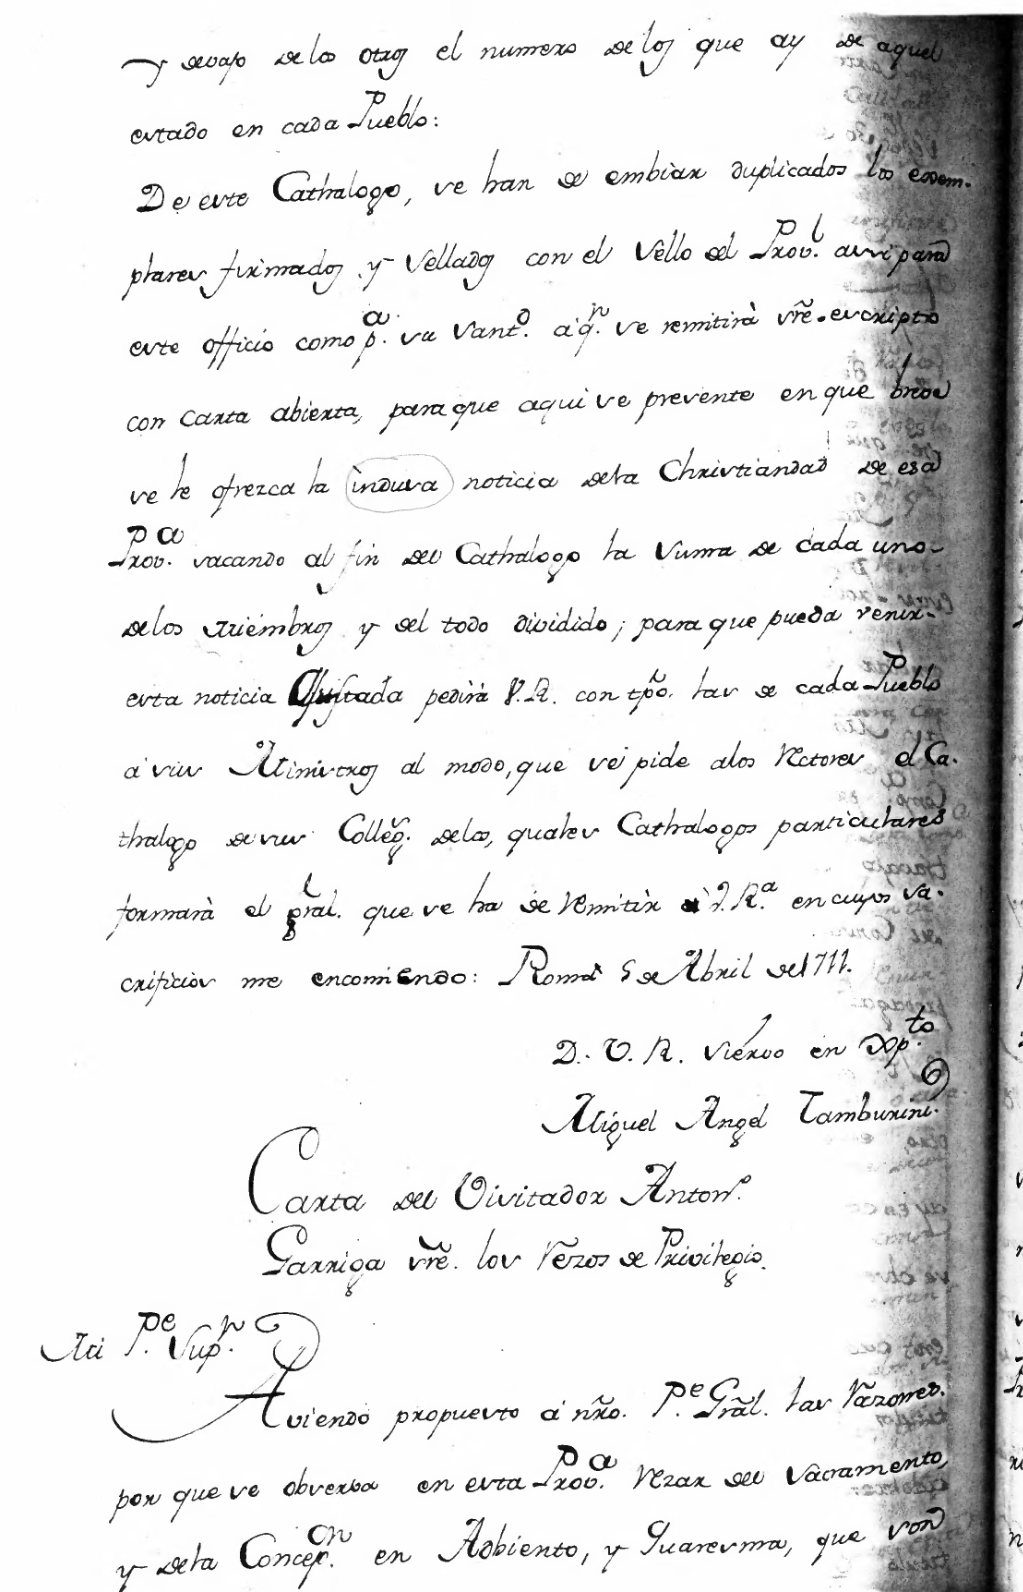 y devajo de los otros el numero de los que ay de aquel
estado en cada Pueblo:
De este Cathalogo, se han de embiar duplicados los exem-
plares firmados y sellados con el sello del Prov.l assi para
este officio como p.a su Sant.d a q.n se remitirà vrẽ. escripto
con carta abierta, para que aqui se prevente en que
se le ofrezca la indusa noticia dela Christiandad de esa
Prov.a sacando al fin del Cathalogo la suma de cada uno
delos miembros y del todo dividido; para que pueda venir
esta noticia ajustada pedirà V.R. con tpõ. las de cada Pueblo
a sus Ministros al modo, que se pide alos Rectores el Ca-
thalogo de sus Colleg.s delos, quales Cathalogos particulares
formarà el gral. que se ha de remitir à V.R.a en cuyos sa-
crificios me encomiendo: Roma 5 de Abril de 1711.
D. V. R. siervo en Xp.to
Miguel Angel Tamburini.
Carta del Visitador Anton.o
Garriga vrẽ. los Rezos de Privilegio.
Mi P.e Sup.r
Aviendo propuesto a nr̃o. P.e Grãl. las razones.
por que se observa en esta Prov.a rezar del Sacramento,
y dela Concep.on en Adbiento, y Quaresma, que son